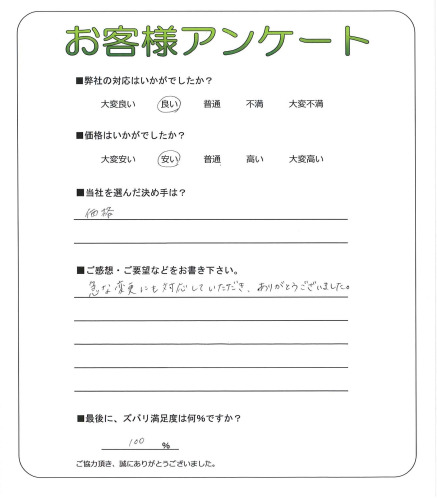 お客様アンケート
■弊社の対応はいかがでしたか？
大変良い 良い 普通 不満 大変不満
■価格はいかがでしたか？
大変安い 安い 普通 高い 大変高い
■当社を選んだ決め手は？
価格
■ご感想・ご要望などをお書き下さい。
急な変更にも対応していただき、ありがとうございました。
■最後に、ズバリ満足度は何%ですか？
100 %
ご協力頂き、誠にありがとうございました。